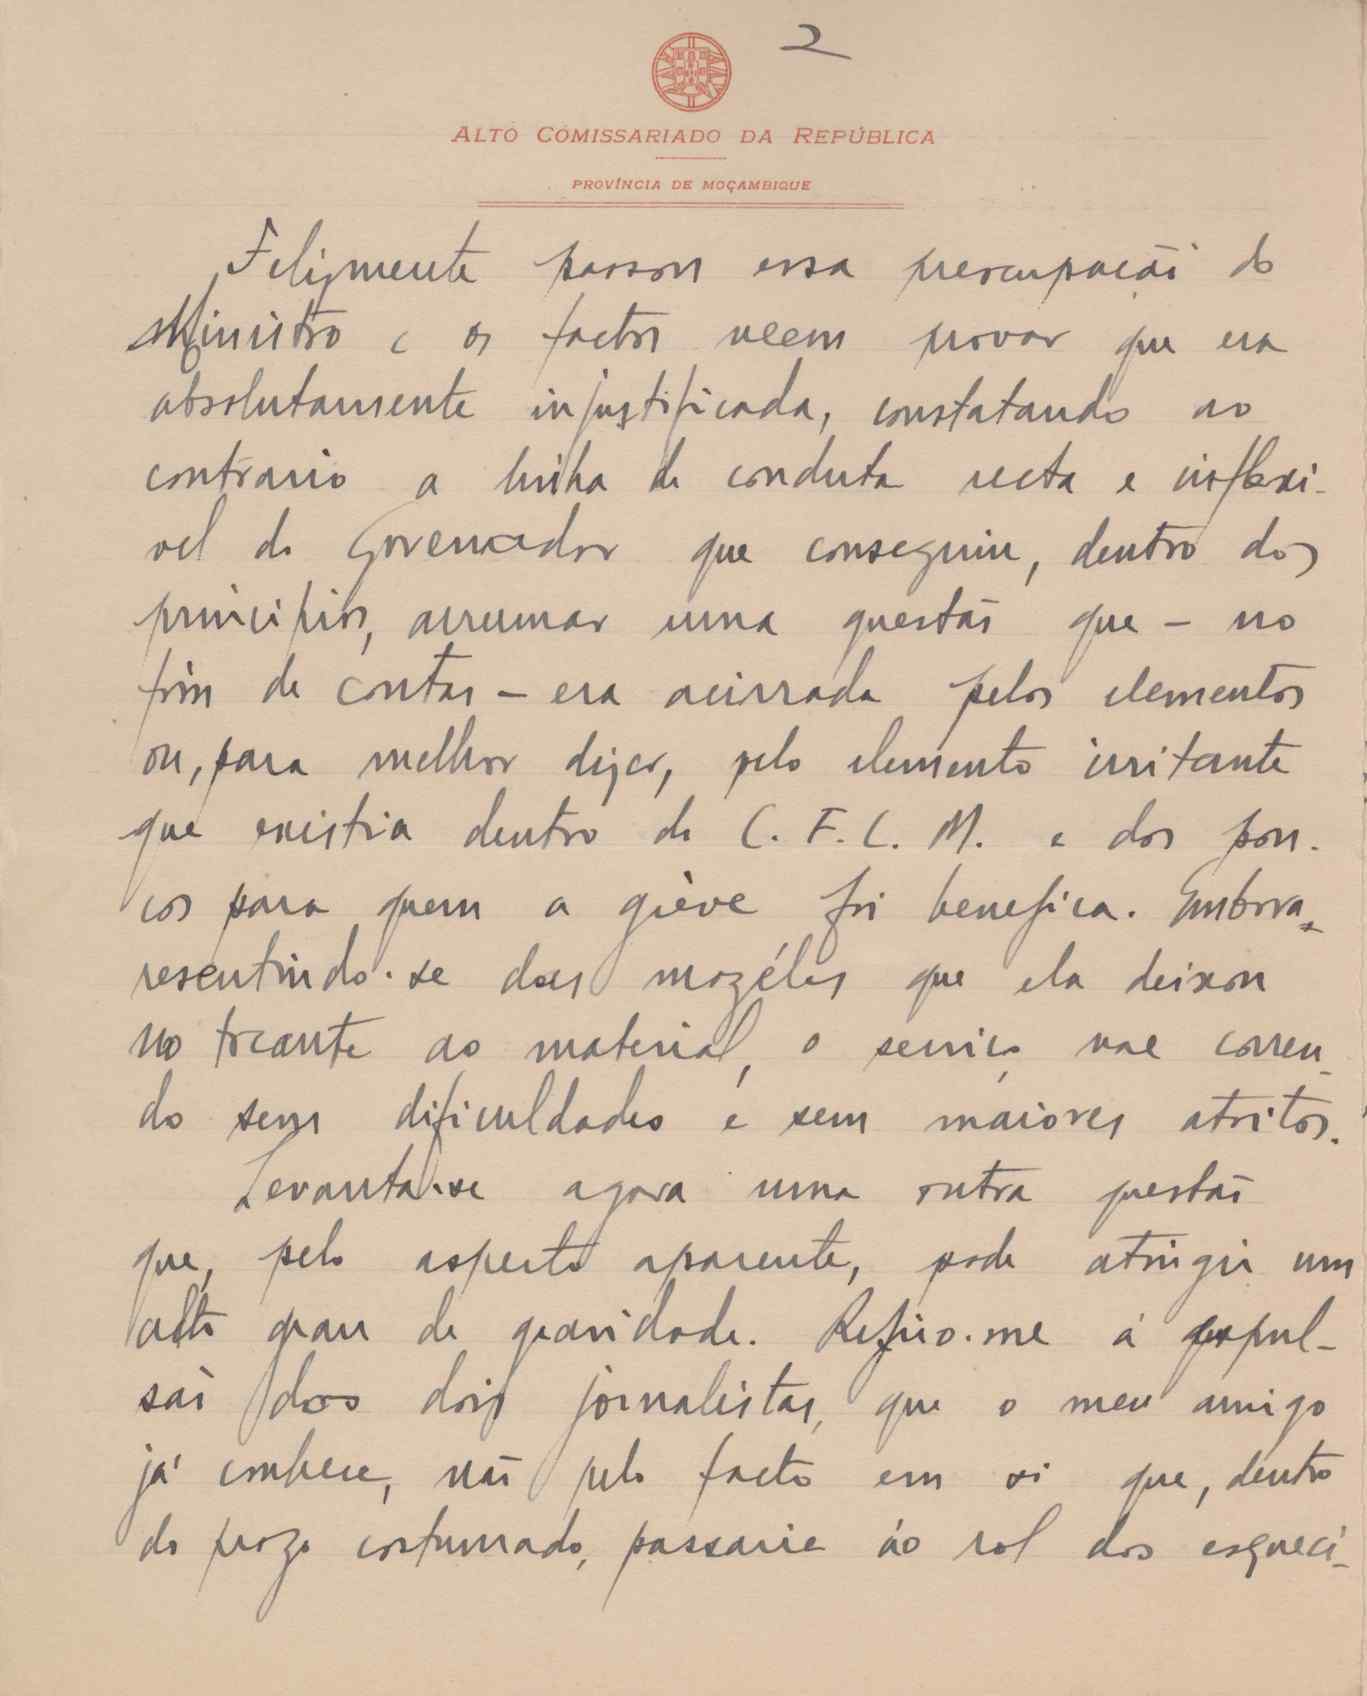 2
ALTO COMISSARIADO DA REPÚBLICA
PROVÍNCIA DE MOÇAMBIQUE
Felizmente passou essa preocupação do
Ministro e os factos veem provar que era
absolutamente injustificada, constatando ao
contrario a linha de conduta recta e inflexi-
vel do Governador que conseguiu, dentro dos
principios, arrumar uma questão que - no
fim de contas - era acirrada pelos elementos
ou, para melhor dizer, pelo elemento irritante
que existia dentro do C. F. L. M. e dos pou-
cos para quem a gréve foi benefica. Embora
resentindo-se das mazélas que ela deixou
no tocante ao material, o serviço vae corren-
do sem dificuldades e sem maiores atritos.
Levanta-se agora uma outra questão
que, pelo aspecto aparente, pode atingir um
alto grau de gravidade. Refiro-me á expul-
são dos dois jornalistas, que o meu amigo
já conhece, não pelo facto em si que, dentro
do prazo costumado, passaria ao rol dos esqueci-